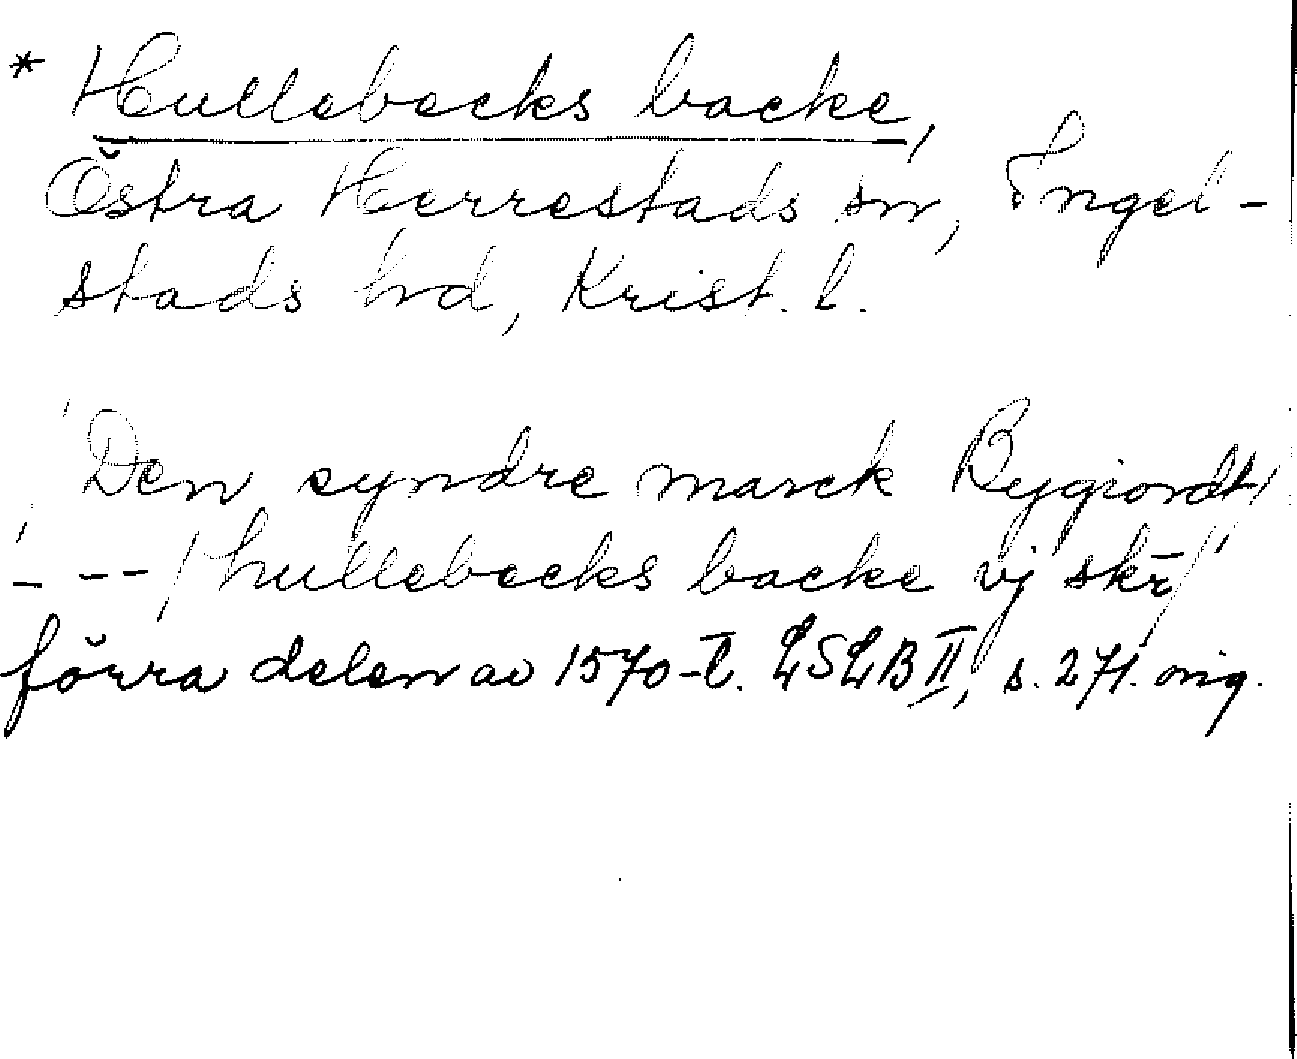 * Hullebecks backe,
Östra Herrestads sn, Ingel-
stads hd, Krist. l.
'Den syndre marck Bygiordt/
- -- / hullebecks backe vj skr̄/'
förra delen av 1570-t. LSLB II, s. 271. orig.